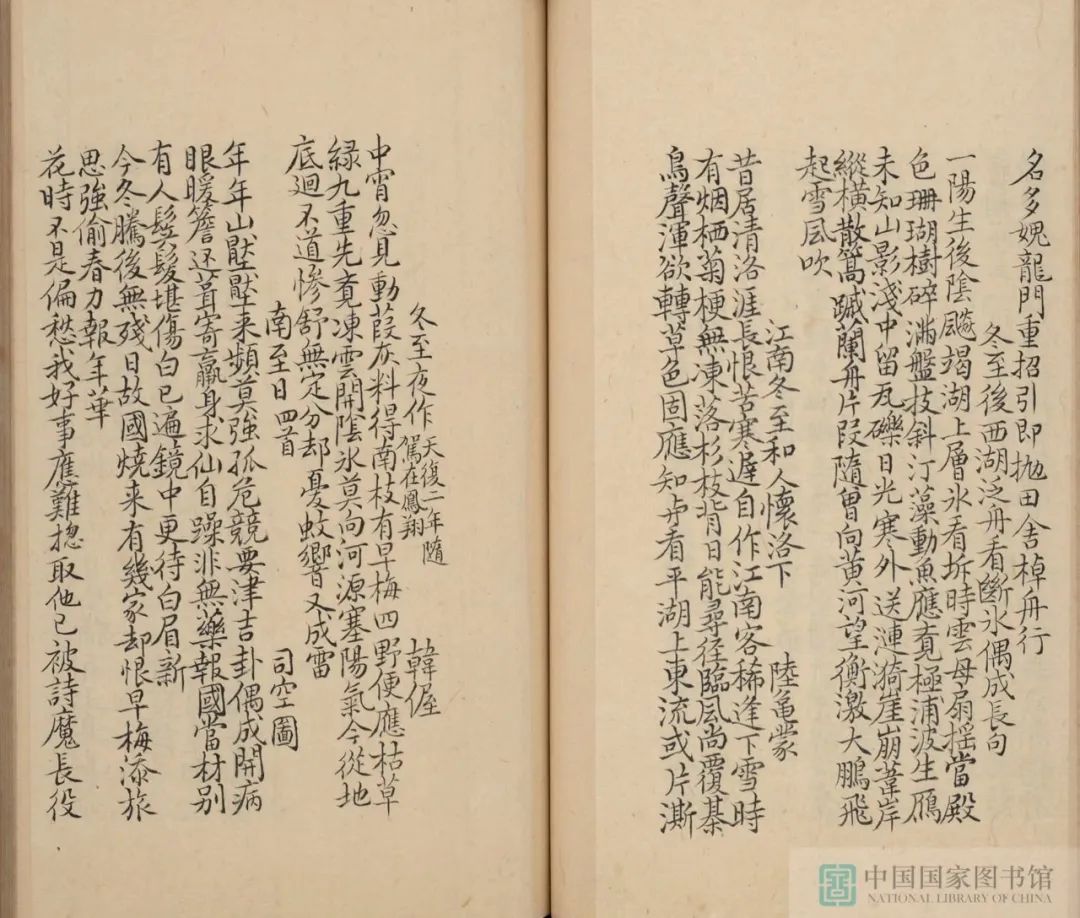 名多媿龍門重招引即抛田舍棹舟行
冬至後西湖泛舟看斷氷偶成長句
一陽生後陰飈竭湖上層氷看坼時雲母扇摇當殿
色珊瑚樹碎滿盤枝斜汀藻動魚應覔極浦波生鴈
未知山影淺中留瓦礫日光寒外送漣漪崖崩葦岸
縱橫散篙蹴蘭舟片段隨曾向黄河望衡激大鵬飛
起雪風吹
江南冬至和人懷洛下 陸龜蒙
昔居清洛涯長恨苦寒遲自作江南客稀逢下雪時
有烟栖菊梗無凍落杉枝背日能尋徑臨風尚覆棊
鳥聲渾欲轉草色固應知與看平湖上東流或片澌
冬至夜作 天復二年隨駕在鳳翔 韓偓
中宵忽見動葭灰料得南枝有早梅四野便應枯草
緑九重先覔凍雲開陰氷莫向河源塞陽氣今從地
底迴不道慘舒無定分却憂蚊響又成雷
南至日四首 司空圖
年年山壓壓来頻莫強孤危競要津吉卦偶成開病
眼暖簷还葺寄羸身求仙自躁非無藥報國當材别
有人鬓髮堪傷白已遍鏡中更待白眉新
今冬騰後無殘日故國燒来有幾家却恨早梅添旅
思強偷春力報年華
花時不是偏愁我好事應難揔取他已被詩魔長役
中国国家图书馆
NATIONAL LIBRARY OF CHINA